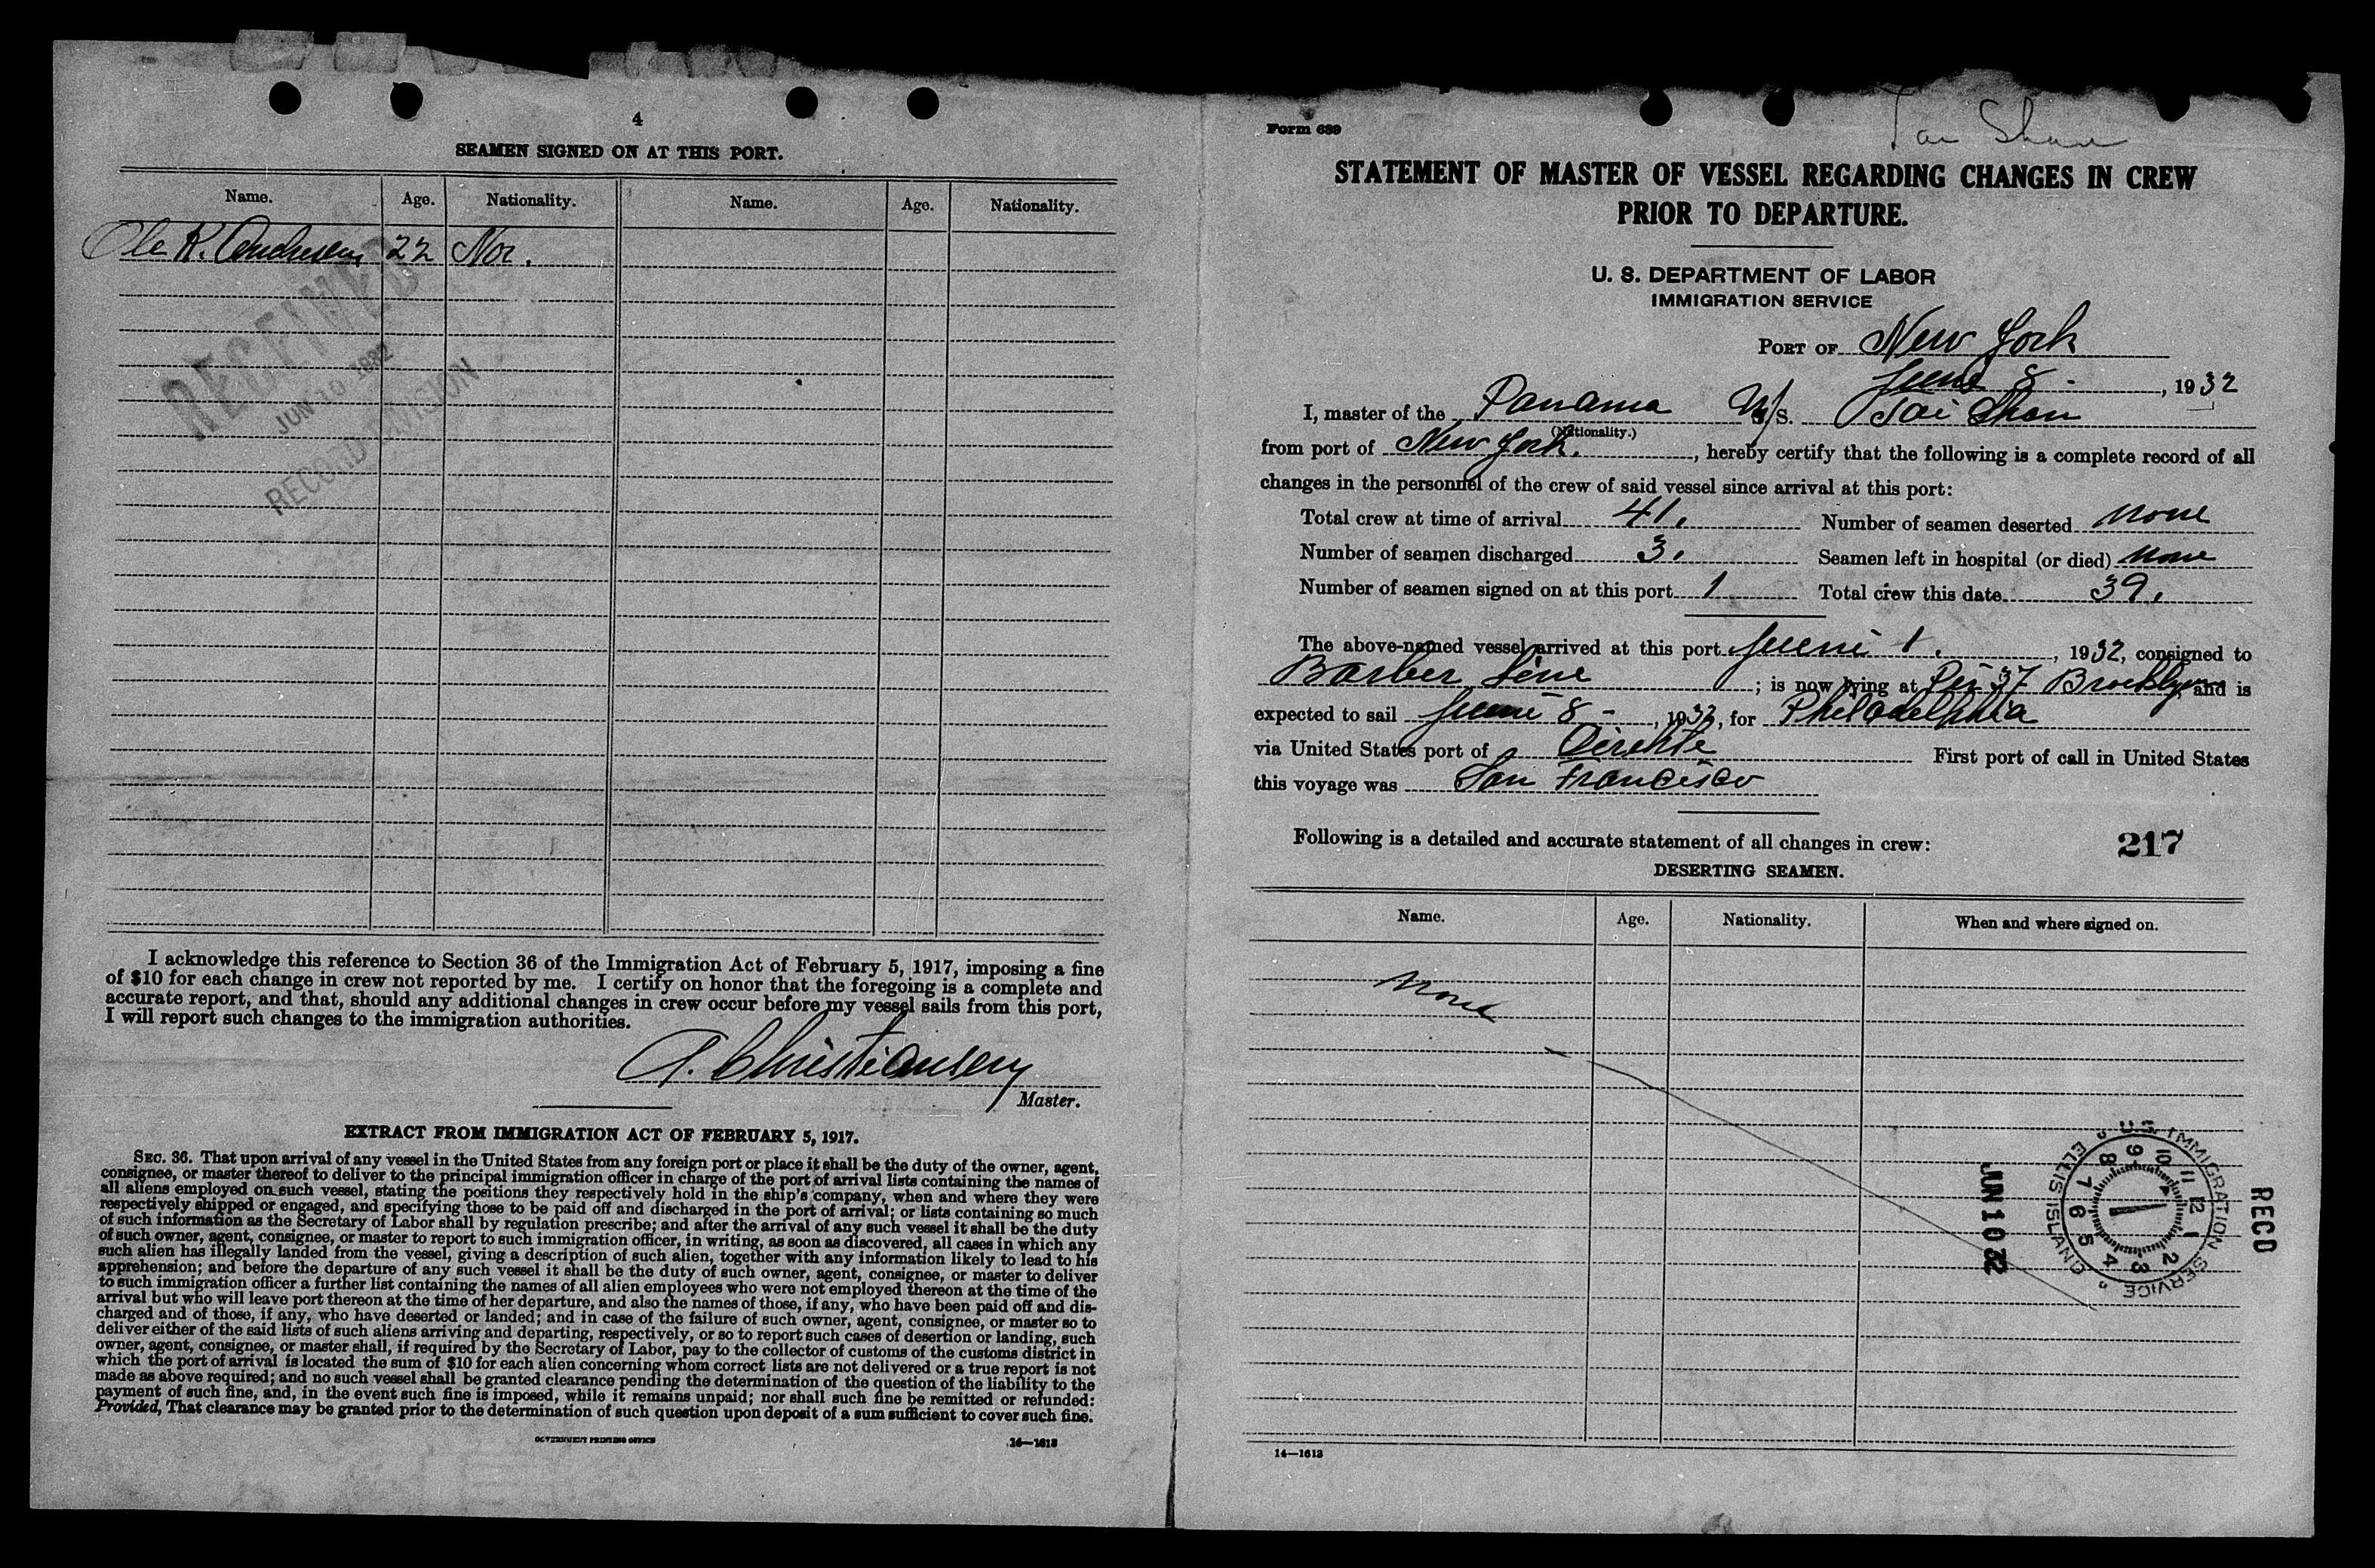 4
SEAMEN SIGNED ON AT THIS PORT.
Name. Age. Nationality. Name. Age. Nationality.
Ole K. Andresen 22 Nor.
RECEIVED
JUN 10 1932
RECORD DIVISION
I acknowledge this reference to Section 36 of the Immigration Act of February 5, 1917, imposing a fine
of $10 for each change in crew not reported by me. I certify on honor that the foregoing is a complete and
accurate report, and that, should any additional changes in crew occur before my vessel sails from this port,
I will report such changes to the immigration authorities.
A. Christiansen
Master.
EXTRACT FROM IMMIGRATION ACT OF FEBRUARY 5, 1917.
SEC. 36. That upon arrival of any vessel in the United States from any foreign port or place it shall be the duty of the owner, agent,
consignee, or master thereof to deliver to the principal immigration officer in charge of the port of arrival lists containing the names of
all aliens employed on such vessel, stating the positions they respectively hold in the ship's company, when and where they were
respectively shipped or engaged, and specifying those to be paid off and discharged in the port of arrival; or lists containing so much
of such information as the Secretary of Labor shall by regulation prescribe; and after the arrival of any such vessel it shall be the duty
of such owner, agent, consignee, or master to report to such immigration officer, in writing, as soon as discovered, all cases in which any
such alien has illegally landed from the vessel, giving a description of such alien, together with any information likely to lead to his
apprehension; and before the departure of any such vessel it shall be the duty of such owner, agent, consignee, or master to deliver
to such immigration officer a further list containing the names of all alien employees who were not employed thereon at the time of the
arrival but who will leave port thereon at the time of her departure, and also the names of those, if any, who have been paid off and dis-
charged and of those, if any, who have deserted or landed; and in case of the failure of such owner, agent, consignee, or master so to
deliver either of the said lists of such aliens arriving and departing, respectively, or so to report such cases of desertion or landing, such
owner, agent, consignee, or master shall, if required by the Secretary of Labor, pay to the collector of customs of the customs district in
which the port of arrival is located the sum of $10 for each alien concerning whom correct lists are not delivered or a true report is not
made as above required; and no such vessel shall be granted clearance pending the determination of the question of the liability to the
payment of such fine, and, in the event such fine is imposed, while it remains unpaid; nor shall such fine be remitted or refunded:
Provided, That clearance may be granted prior to the determination of such question upon deposit of a sum sufficient to cover such fine.
GOVERNMENT PRINTING OFFICE 14—1613
Tai Shan
Form 689
STATEMENT OF MASTER OF VESSEL REGARDING CHANGES IN CREW
PRIOR TO DEPARTURE.
U. S. DEPARTMENT OF LABOR
IMMIGRATION SERVICE
PORT OF New York
June 8 - , 1932
I, master of the Panama M/S. Tai Shan
(Nationality.)
from port of New York. , hereby certify that the following is a complete record of all
changes in the personnel of the crew of said vessel since arrival at this port:
Total crew at time of arrival 41. Number of seamen deserted none
Number of seamen discharged 3. Seamen left in hospital (or died) none
Number of seamen signed on at this port 1 Total crew this date 39.
The above-named vessel arrived at this port June 1. , 1932, consigned to
Barber Line ; is now lying at Pier 37 Brooklyn, and is
expected to sail June 8 - , 1932, for Philadelphia
via United States port of Direkte First port of call in United States
this voyage was San Francisco
Following is a detailed and accurate statement of all changes in crew: 217
DESERTING SEAMEN.
Name. Age. Nationality. When and where signed on.
None
U.S. IMMIGRATION SERVICE ELLIS ISLAND
1 2 3 4 5 6 7 8 9 10 11 12
JUN 10 32
RECD
14—1613